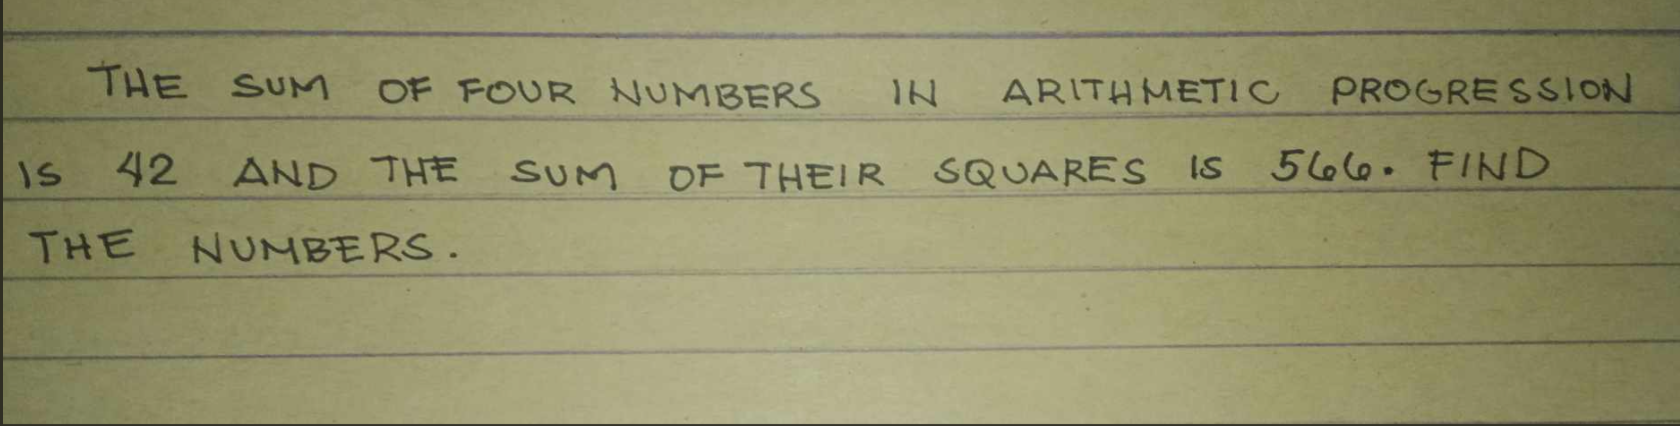 THE SUM OF FOUR NUMBERS IN ARITHMETIC PROGRESSION
IS 42 AND THE SUM OF THEIR SQUARES IS 566. FIND
THE NUMBERS.